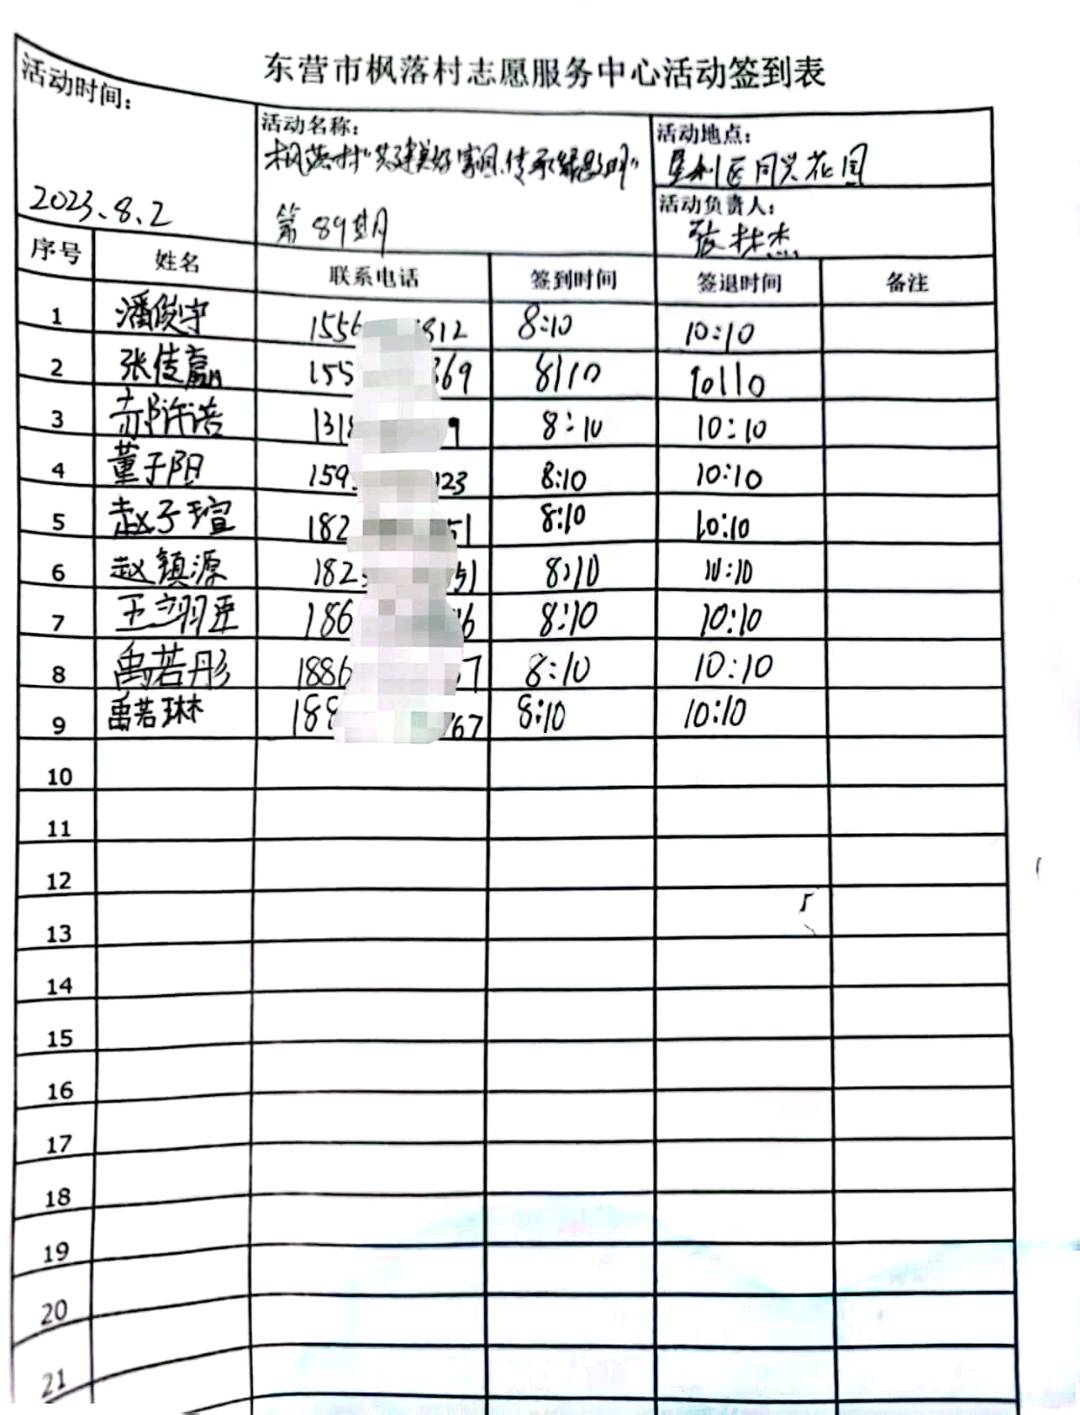 东营市枫落村志愿服务中心活动签到表
活动时间：
2023.8.2
活动名称：
枫落村"共建美好家园、传承
第89期
活动地点：
垦利区同兴花园
活动负责人：
张林杰
序号 姓名 联系电话 签到时间 签退时间 备注
1 潘俊宇 1556 812 8:10 10:10
2 张佳赢 155 369 8:10 10:10
3 郝许浩 131 9 8:10 10:10
4 董子阳 159 123 8:10 10:10
5 赵子瑄 182 51 8:10 10:10
6 赵镇源 182 51 8:10 10:10
7 王翊臣 186 6 8:10 10:10
8 禹若彤 1886 7 8:10 10:10
9 禹若琳 188 67 8:10 10:10
10
11
12
13
14
15
16
17
18
19
20
21